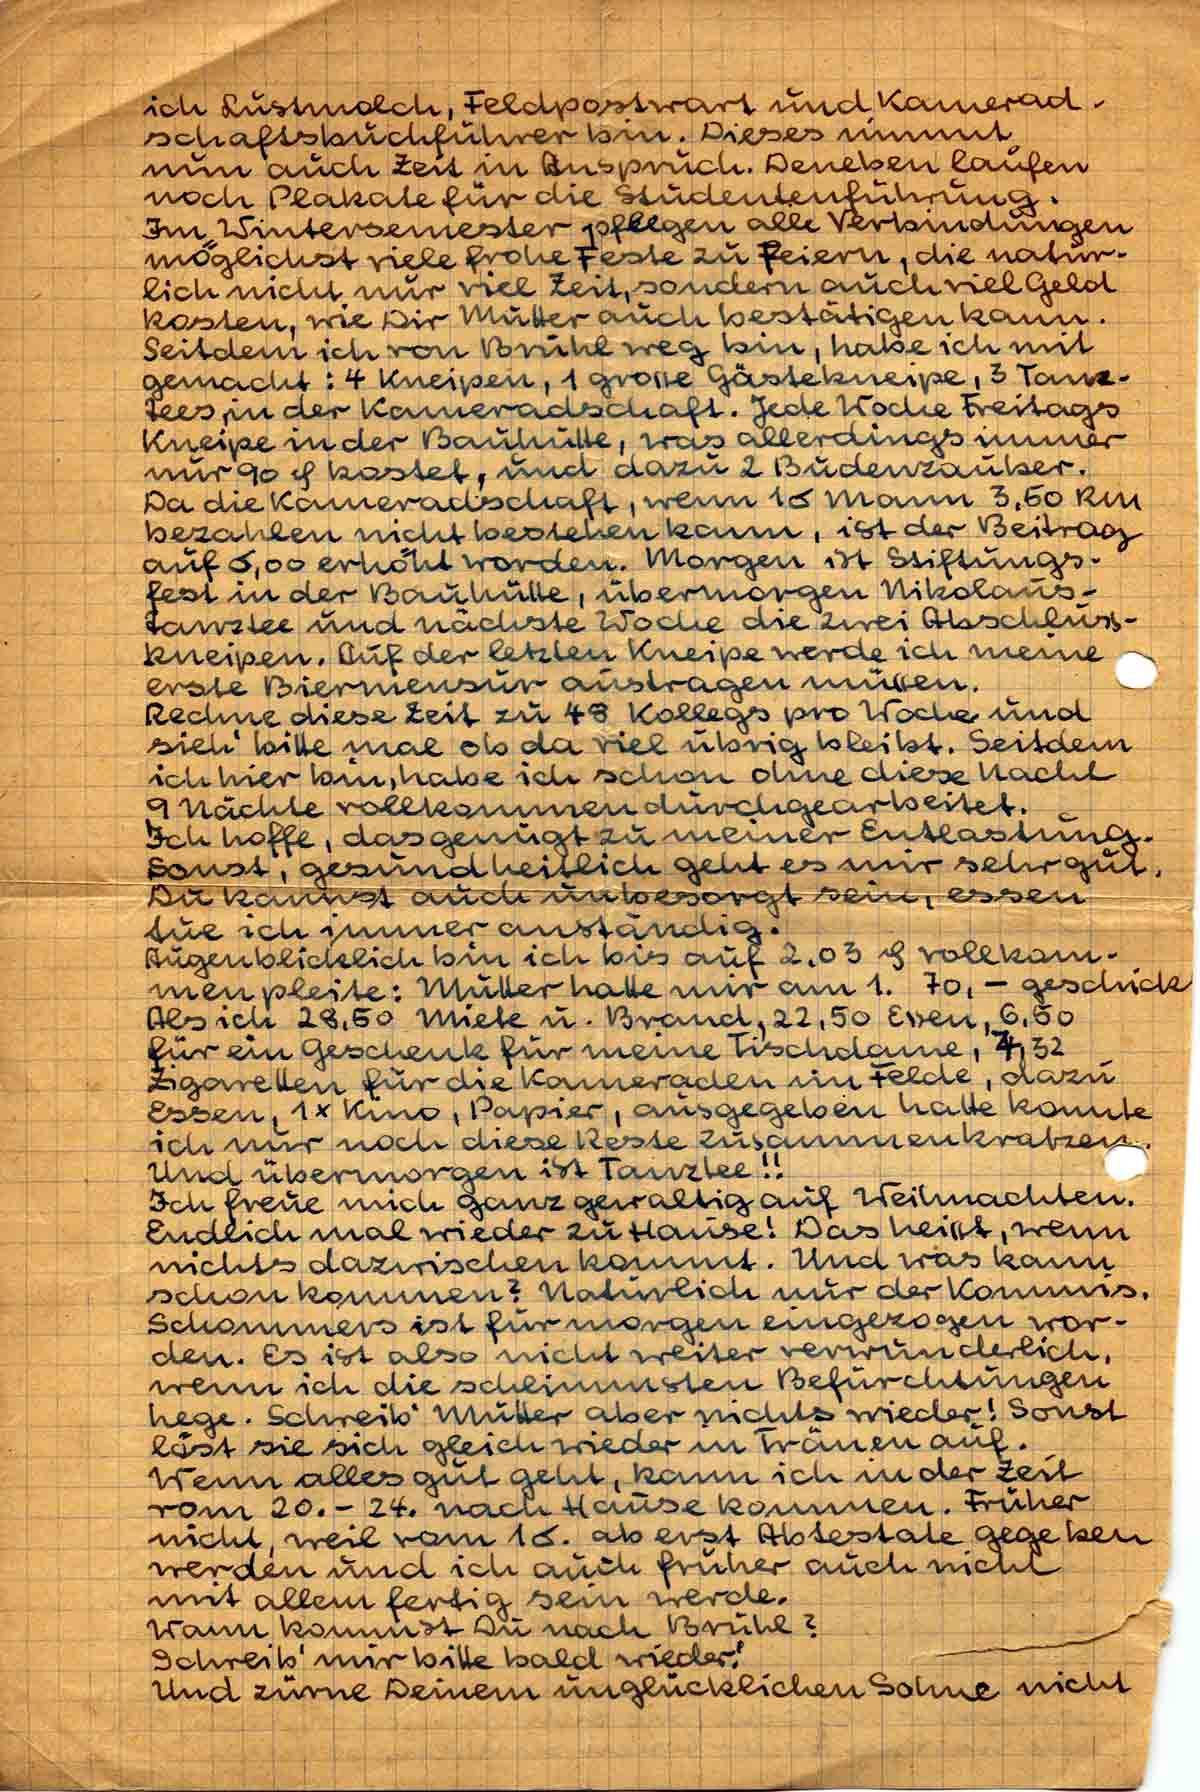 ich Lustmolch, Feldpostwart und Kamerad-
schaftsbuchführer bin. Dieses nimmt
nun auch Zeit in Anspruch. Deneben laufen
noch Plakate für die Studentenführung.
Im Wintersemester pflegen alle Verbindungen
möglichst viele frohe Feste zu feiern, die natür-
lich nicht nur viel Zeit, sondern auch viel Geld
kosten, wie Dir Mutter auch bestätigen kann.
Seitdem ich von Brühl weg bin, habe ich mit
gemacht: 4 Kneipen, 1 große Gästekneipe, 3 Tanz-
tees, in der Kameradschaft. Jede Woche Freitags
Kneipe in der Bauhütte, was allerdings immer
nur 90 ₰ kostet, und dazu 2 Budenzauber.
Da die Kameradschaft, wenn 16 Mann 3,50 Rm
bezahlen nicht bestehen kann, ist der Beitrag
auf 6,00 erhöht worden. Morgen ist Stiftungs-
fest in der Bauhütte, übermorgen Nikolaus-
tanztee und nächste Woche die zwei Abschluß-
kneipen. Auf der letzten Kneipe werde ich meine
erste Biermensur austragen müssen.
Rechne diese Zeit zu 48 Kollegs pro Woche und
sieh' bitte mal ob da viel übrig bleibt. Seitdem
ich hier bin, habe ich schon ohne diese Nacht
9 Nächte vollkommen durchgearbeitet.
Ich hoffe, das genügt zu meiner Entlastung.
Sonst, gesundheitlich geht es mir sehr gut.
Du kannst auch unbesorgt sein, essen
tue ich immer anständig.
Augenblicklich bin ich bis auf 2.03 ₰ vollkom-
men pleite: Mutter hatte mir am 1. 70,- geschick
Als ich 28,50 Miete u. Brand, 22,50 Essen, 6,50
für ein Geschenk für meine Tischdame, 4,32
Zigaretten für die Kameraden im Felde, dazu
Essen, 1x Kino, Papier, ausgegeben hatte konnte
ich nur noch diese Reste zusammenkratzen.
Und übermorgen ist Tanztee!!
Ich freue mich ganz gewaltig auf Weihnachten.
Endlich mal wieder zu Hause! Das heißt, wenn
nichts dazwischen kommt. Und was kann
schon kommen? Natürlich nur der Kommis.
Schommers ist für morgen eingezogen wor-
den. Es ist also nicht weiter verwunderlich,
wenn ich die schlimmsten Befürchtungen
hege. Schreib' Mutter aber nichts wieder! Sonst
löst sie sich gleich wieder in Tränen auf.
Wenn alles gut geht, kann ich in der Zeit
vom 20.-24. nach Hause kommen. Früher
nicht, weil vom 16. ab erst Abtestate gegeben
werden und ich auch früher auch nicht
mit allem fertig sein werde.
Wann kommst Du nach Brühl?
Schreib' mir bitte bald wieder!
Und zürne Deinem unglücklichen Sohne nicht